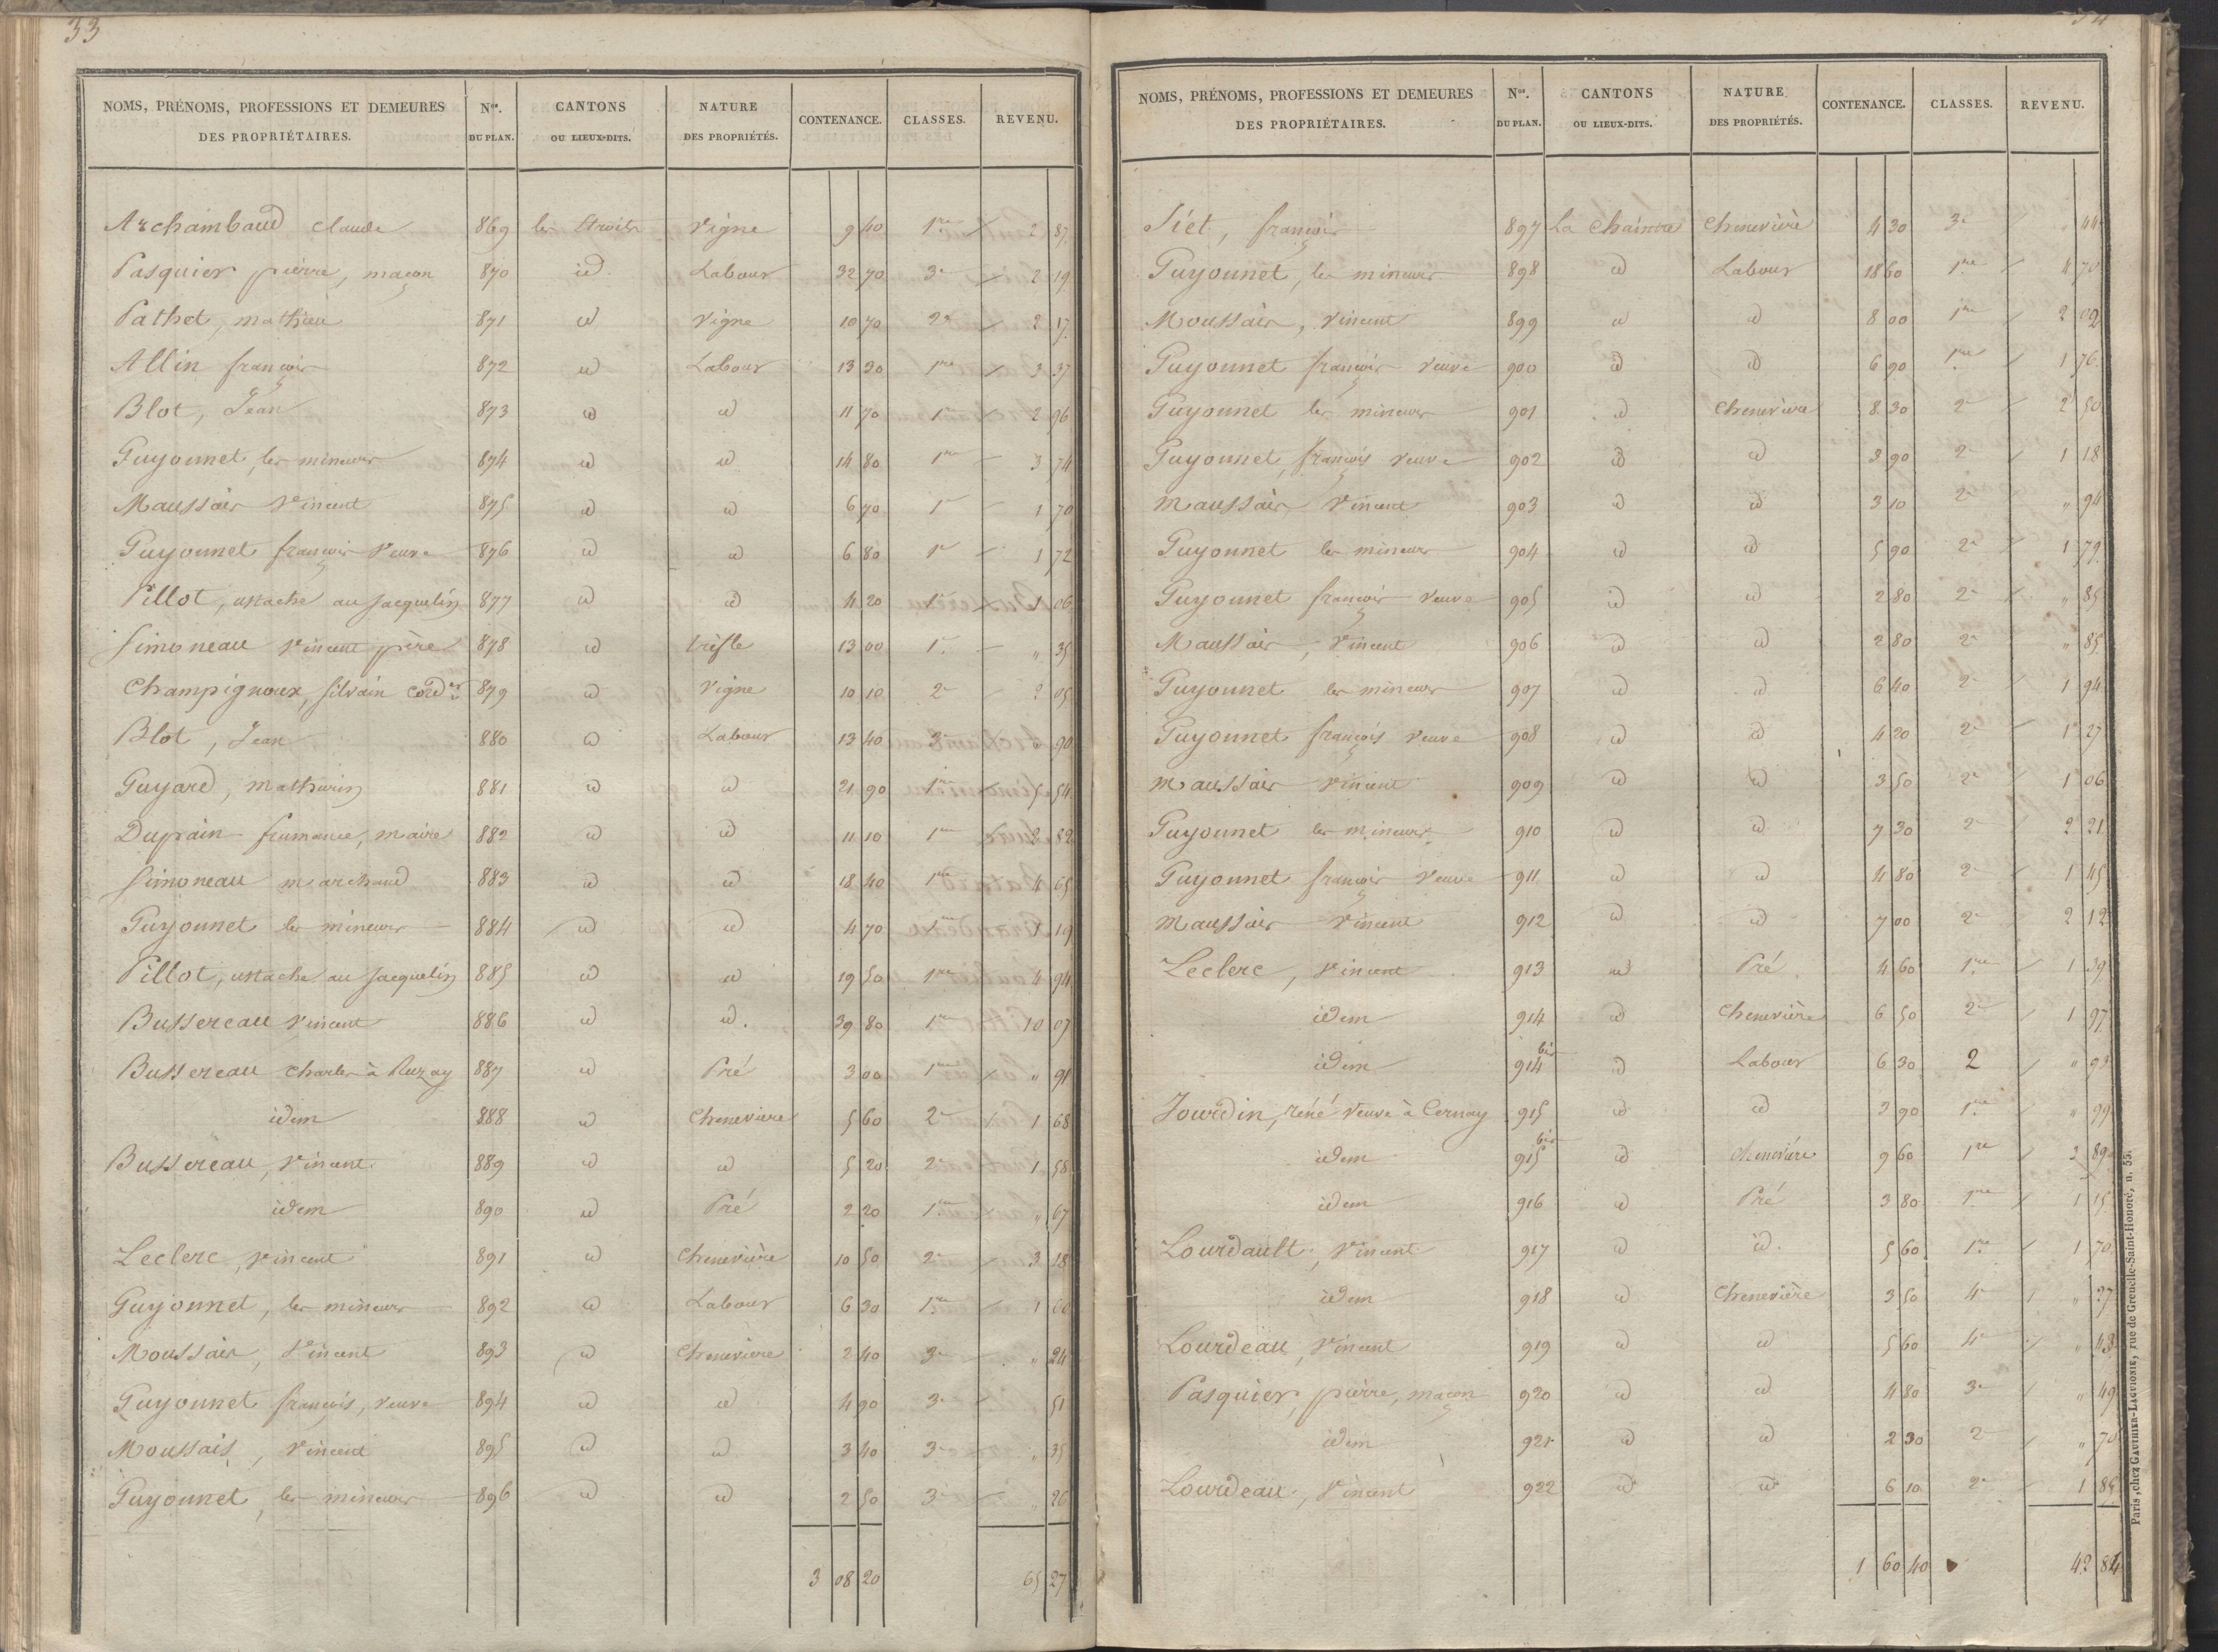 33
NOMS, PRÉNOMS, PROFESSIONS ET DEMEURES DES PROPRIÉTAIRES. Nos. DU PLAN. CANTONS OU LIEUX-DITS. NATURE DES PROPRIÉTÉS. CONTENANCE. CLASSES. REVENU.
Archambaud Claude 869 les Etroits Vigne 9 40 1re 2 87
Pasquier pierre, maçon 870 id. Labour 32 70 3e 2 19
Pathet, mathieu 871 id Vigne 10 70 2e 2 17
Allin françois 872 id Labour 13 30 1re 3 37
Blot, Jean 873 id id 11 70 1re 2 96
Guyonnet, les mineurs 874 id id 14 80 1re 3 74
Maussais Vincent 875 id id 6 70 1re 1 70
Guyonnet françois Veuve 876 id id 6 80 1re 1 72
Pillot, ustache au Jacquelin 877 id id 4 20 1re 1 06
Simoneau Vincent père 878 id trèfle 13 00 1re " 35
Champignoux, Silvain Cordier 879 id Vigne 10 10 2e 2 05
Blot, Jean 880 id Labour 13 40 3e " 90
Guyard, mathurin 881 id id 21 90 1re 5 54
Duprain frumance, maire 882 id id 11 10 1re 2 82
Simoneau marchand 883 id id 18 40 1re 4 65
Guyonnet les mineurs 884 id id 4 70 1re 1 19
Pillot, ustache au Jacquelin 885 id id 19 50 1re 4 94
Bussereau Vincent 886 id id. 39 80 1re 10 07
Bussereau Charles à Ruzay 887 id Pré 3 00 1re " 91
idem 888 id Cheneviere 5 60 2e 1 68
Bussereau, Vincent 889 id id 5 20 2e 1 58
idem 890 id Pré 2 20 1re " 67
Leclerc, Vincent 891 id Chenevière 10 50 2e 3 18
Guyonnet, les mineurs 892 id Labour 6 30 1re 1 60
Moussais, Vincent 893 id Cheneviere 2 40 3e " 24
Guyonnet françois, veuve 894 id id 4 90 3e " 51
Moussais, Vincent 895 id id 3 40 3e " 35
Guyonnet, les mineurs 896 id id 2 50 3e " 26
3 08 20 65 27
34
NOMS, PRÉNOMS, PROFESSIONS ET DEMEURES DES PROPRIÉTAIRES. Nos. DU PLAN. CANTONS OU LIEUX-DITS. NATURE DES PROPRIÉTÉS. CONTENANCE. CLASSES. REVENU.
françois 897 La Chaintre Chenevière 4 30 3e " 44
Guyonnet, les mineurs 898 id Labour 18 60 1re 4 70
Moussais, Vincent 899 id id 8 00 1re 2 02
Guyonnet françois Veuve 900 id id 6 90 1re 1 76
Guyonnet les mineurs 901 id Cheneviere 8 30 2e 2 50
Guyonnet, françois Veuve 902 id id 3 90 2e 1 18
Maussais Vincent 903 id id 3 10 2e " 94
Guyonnet les mineurs 904 id id 5 90 2e 1 79
Guyonnet françois Veuve 905 id id 2 80 2e " 85
Maussais, Vincent 906 id id 2 80 2e " 85
Guyonnet les mineurs 907 id id 6 40 2e 1 94
Guyonnet françois Veuve 908 id id 4 20 2e 1 27
Maussais Vincent 909 id id 3 50 2e 1 06
Guyonnet les mineurs 910 id id 7 30 2e 2 21
Guyonnet françois Veuve 911 id id 4 80 2e 1 45
Maussais Vincent 912 id id 7 00 2e 2 12
Leclerc, Vincent 913 id Pré 4 60 1re 1 39
idem 914 id Chenevière 6 50 2e 1 97
idem 914 bis id Labour 6 30 2 " 93
Jourdin, réné Veuve à Cernay 915 id id 3 90 1re " 99
idem 915 bis id Chenevière 9 60 1re 3 89
idem 916 id Pré 3 80 1re 1 15
Lourdault, Vincent 917 id id. 5 60 1re 1 70
idem 918 id Chenevière 3 50 4e " 27
Lourdeau, Vincent 919 id id 5 60 4e " 43
Pasquier, pierre, maçon 920 id id 4 80 3e " 49
idem 921 id id 2 30 2e " 70
Lourdeau, Vincent 922 id id 6 10 2e 1 85
1 60 40 42 84
Paris, chez GAUTHIER-LAGUIONIE, rue de Grenelle-Saint-Honoré, n. 55.